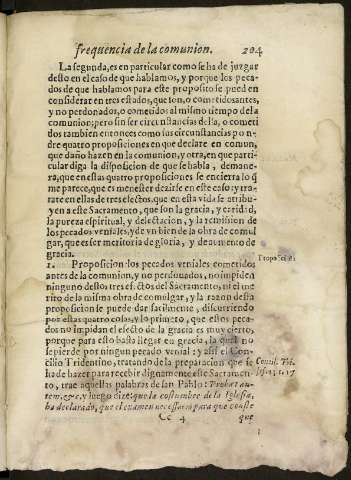 frequencia de la comunion. 204
La segunda, es en particular como se ha de juzgar
desto en el caso de que hablamos, y porque los peca-
dos de que hablamos para este proposito se pueden
considerar en tres estados, que son, o cometidos antes,
y no perdonados, o cometidos al mismo tiempo de la
comunion; pero sin ser circunstancias della, o cometi
dos tambien entonces como sus circunstancias pon-
dre quatro proposiciones en que declare en comun,
que daño hazen en la comunion, y otra, en que parti-
cular diga la disposicion de que se habla, demane-
ra, que en estas quatro proposiciones se encierra lo q̃
me parece, que es menester dezirse en este caso: y tra-
tare en ellas de tres efectos, que en esta vida se atribu-
yen a este Sacramento, que son la gracia, y caridad,
la pureza espiritual, y delectacion, y la remission de
los pecados veniales, y de vn bien de la obra de comul
gar, que es ser meritoria de gloria, y de aumento de
gracia.
1. Proposicion los pecados veniales cometidos
antes de la comunion, y no perdonados, no impiden
ninguno destos tres efectos del Sacramento, ni el me
rito de la misma obra de comulgar, y la razon desta
proposicion se puede dar facilmente, discurriendo
por estas quatro cosas, y lo primero, que estos peca-
dos no impidan el efecto de la gracia es muy cierto,
porque para esto basta llegar en gracia, la qual no
se pierde por ningun pecado venial: y assi el Con-
cilio Tridentino, tratando de la preparacion que se
ha de hazer para recebir dignamente este Sacramen-
to, trae aquellas palabras de san Pablo: Probet au-
tem, &c. y luego dize: que la costumbre de la Iglesia,
ha declarado, que el examen necessario para que conste
Cc 4 que